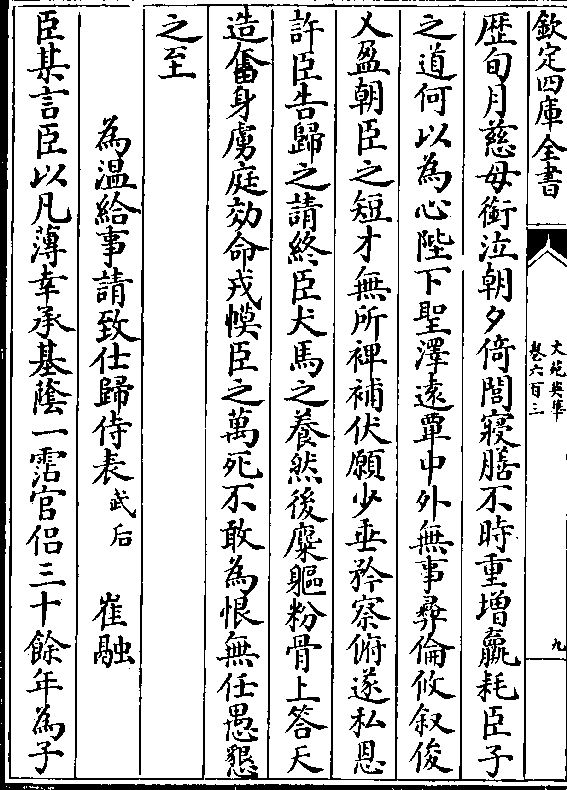 欽定四庫全書
文苑英華
卷六百三
九
歴旬月慈母銜泣朝夕倚閭寢膳不時重增羸耗臣子
之道何以為心陛下聖澤遠覃中外無事彛倫攸叙俊
乂盈朝臣之短才無所裨補伏願少垂矜察俯遂私恩
許臣告歸之請終臣犬馬之養然後糜軀粉骨上答天
造奮身虜庭効命戎幙臣之萬死不敢為恨無任愚懇
之至
為温給事請致仕歸侍表武后 崔融
臣某言臣以凡薄幸承基蔭一霑官侣三十餘年為子